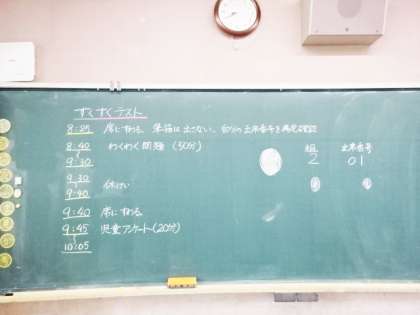 すくすくテスト
8:25 席にすわる。筆箱は出さない。自分の出席番号を再度確認
8:40
わくわく問題（50分）
9:30
9:30
休けい
9:40
9:40 席にすわる。
9:45 児童アンケート（20分）
10:05
組 出席番号
2 01